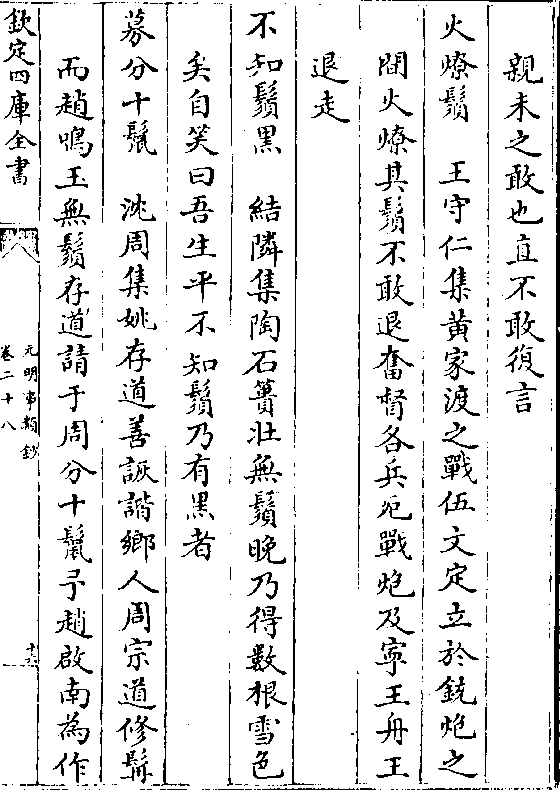 親未之敢也直不敢復言
火燎鬚　王守仁集黄家渡之戰伍文定立於銃炮之
間火燎其鬚不敢退奮督各兵死戰炮及寧王舟王
退走
不知鬚黑　結隣集陶石簣壯無鬚晚乃得數根雪色
矣自笑曰吾生平不知鬚乃有黑者
募分十鬛　沈周集姚存道善詼諧鄉人周宗道修髯
而趙鳴玉無鬚存道請于周分十鬛予趙啟南為作
欽定四庫全書
元明事類鈔
卷二十八